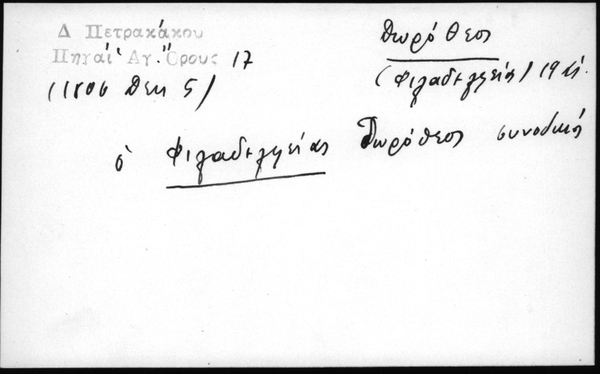 Δ Πετρακάκου
Πηγαί Ἁγ. Ὄρους 17
(1806 Δεκ 5)
Δωρόθεος
(Φιλαδελφείας) 19 αἰ.
ὁ Φιλαδελφείας Δωρόθεος συνοδικός